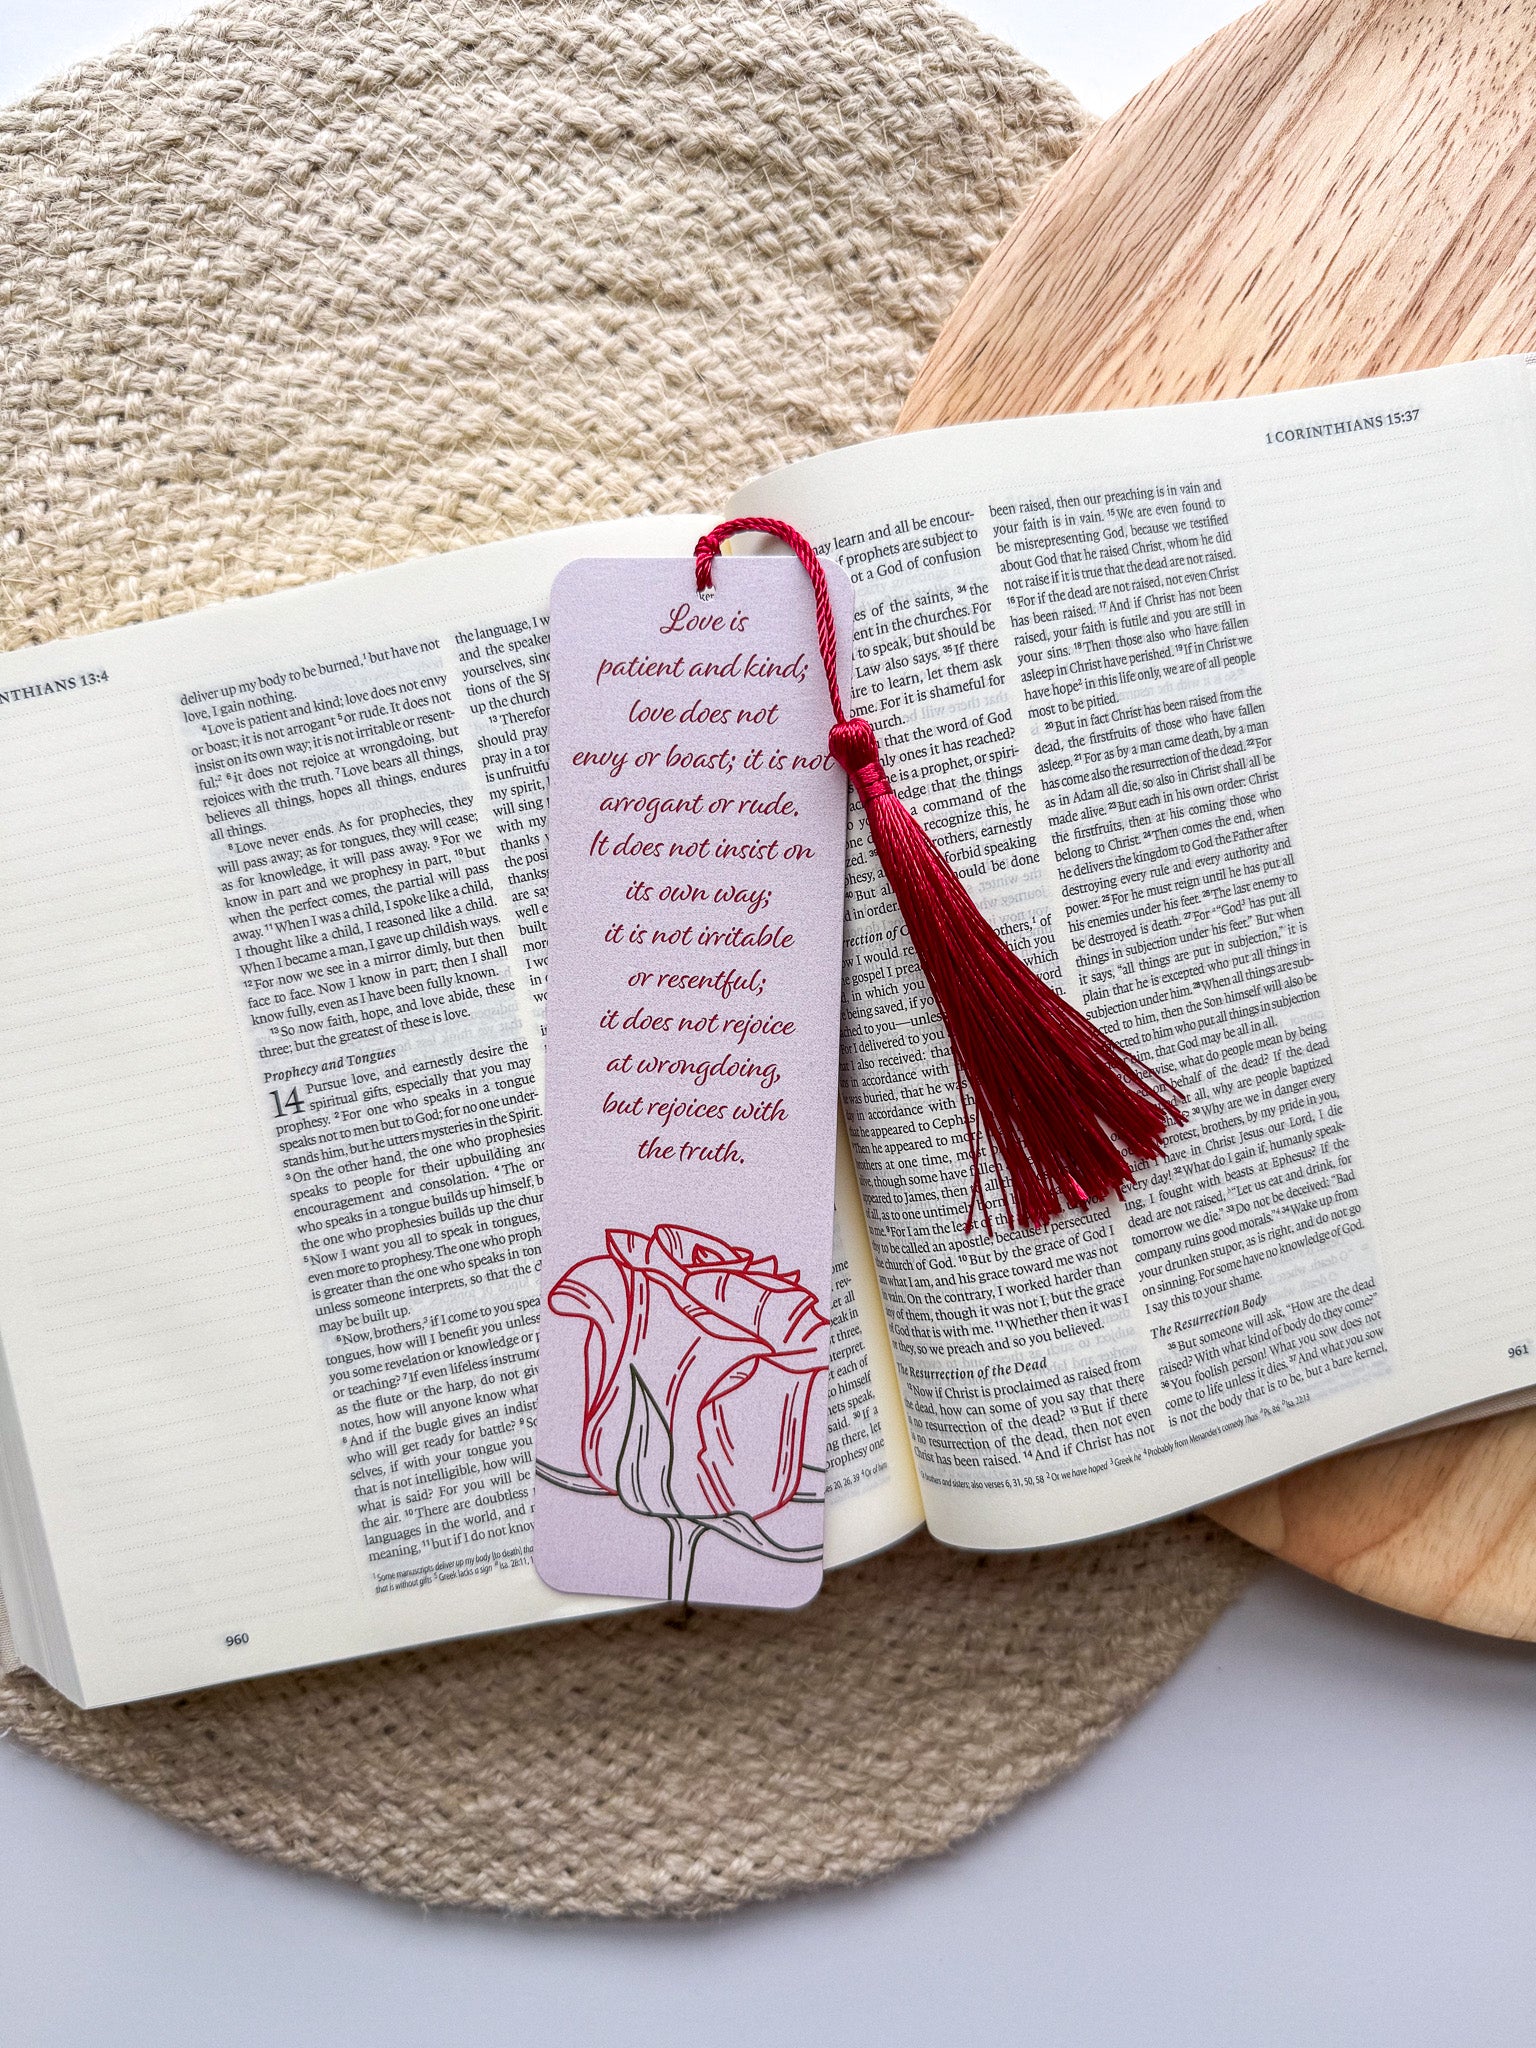 NTHIANS 13:4
deliver up my body to be burned,¹ but have not
love, I gain nothing.
⁴Love is patient and kind; love does not envy
or boast; it is not arrogant ⁵or rude. It does not
insist on its own way; it is not irritable or resent-
ful;² ⁶it does not rejoice at wrongdoing, but
rejoices with the truth. ⁷Love bears all things,
believes all things, hopes all things, endures
all things.
⁸Love never ends. As for prophecies, they
will pass away; as for tongues, they will cease;
as for knowledge, it will pass away. ⁹For we
know in part and we prophesy in part, ¹⁰but
when the perfect comes, the partial will pass
away. ¹¹When I was a child, I spoke like a child,
I thought like a child, I reasoned like a child.
When I became a man, I gave up childish ways.
¹²For now we see in a mirror dimly, but then
face to face. Now I know in part; then I shall
know fully, even as I have been fully known.
¹³So now faith, hope, and love abide, these
three; but the greatest of these is love.
Prophecy and Tongues
14 Pursue love, and earnestly desire the
spiritual gifts, especially that you may
prophesy. ²For one who speaks in a tongue
speaks not to men but to God; for no one under-
stands him, but he utters mysteries in the Spirit.
³On the other hand, the one who prophesies
speaks to people for their upbuilding and
encouragement and consolation. ⁴The on
who speaks in a tongue builds up himself, b
the one who prophesies builds up the chur
⁵Now I want you all to speak in tongues,
even more to prophesy. The one who proph
is greater than the one who speaks in ton
unless someone interprets, so that the c
may be built up.
⁶Now, brothers,³ if I come to you spea
tongues, how will I benefit you unless
you some revelation or knowledge or p
or teaching? ⁷If even lifeless instrum
as the flute or the harp, do not giv
notes, how will anyone know what
⁸And if the bugle gives an indist
who will get ready for battle? ⁹So
selves, if with your tongue you
that is not intelligible, how will
what is said? For you will be
the air. ¹⁰There are doubtless
languages in the world, and
meaning, ¹¹but if I do not know
¹Some manuscripts deliver up my body [to death] tha
that is without gifts ⁵Greek lacks a sign ⁶Isa. 28:11, 1
960
the language, I w
and the speake
yourselves, sinc
tions of the Sp
up the church
¹³Therefor
should pray
pray in a ton
is unfruitfu
my spirit, 
will sing
with my
thanks
the posi
thanksg
are say
well e
built
more
I wo
in
wo
Love is
patient and kind;
love does not
envy or boast; it is not
arrogant or rude.
It does not insist on
its own way;
it is not irritable
or resentful;
it does not rejoice
at wrongdoing,
but rejoices with
the truth.
1 CORINTHIANS 15:37
may learn and all be encour-
f prophets are subject to
ot a God of confusion
es of the saints, ³⁴the
ent in the churches. For
to speak, but should be
Law also says. ³⁵If there
ire to learn, let them ask
ome. For it is shameful for
hurch.
that the word of God
nly ones it has reached?
e is a prophet, or spiri-
ledge that the things
a command of the
recognize this, he
rothers, earnestly
forbid speaking
hould be done
in order.
rection of
others,¹ of
w I would re
which you
gospel I prea
which
in which you
word
being saved, if you
in.
ched to you—unles
For I delivered to you
I also received: tha
in accordance with
was buried, that he was
day in accordance with th
that he appeared to Cephas
Then he appeared to more
brothers at one time, most
alive, though some have fallen
appeared to James, then
of all, as to one untimely born
me. ⁹For I am the least of the
to be called an apostle, because I persecuted
the church of God. ¹⁰But by the grace of God I
am what I am, and his grace toward me was not
vain. On the contrary, I worked harder than
any of them, though it was not I, but the grace
of God that is with me. ¹¹Whether then it was I
or they, so we preach and so you believed.
The Resurrection of the Dead
¹²Now if Christ is proclaimed as raised from
the dead, how can some of you say that there
is no resurrection of the dead? ¹³But if there
is no resurrection of the dead, then not even
Christ has been raised. ¹⁴And if Christ has not
been raised, then our preaching is in vain and
your faith is in vain. ¹⁵We are even found to
be misrepresenting God, because we testified
about God that he raised Christ, whom he did
not raise if it is true that the dead are not raised.
¹⁶For if the dead are not raised, not even Christ
has been raised. ¹⁷And if Christ has not been
raised, your faith is futile and you are still in
your sins. ¹⁸Then those also who have fallen
asleep in Christ have perished. ¹⁹If in Christ we
have hope² in this life only, we are of all people
most to be pitied.
²⁰But in fact Christ has been raised from the
dead, the firstfruits of those who have fallen
asleep. ²¹For as by a man came death, by a man
has come also the resurrection of the dead. ²²For
as in Adam all die, so also in Christ shall all be
made alive. ²³But each in his own order: Christ
the firstfruits, then at his coming those who
belong to Christ. ²⁴Then comes the end, when
he delivers the kingdom to God the Father after
destroying every rule and every authority and
power. ²⁵For he must reign until he has put all
his enemies under his feet. ²⁶The last enemy to
be destroyed is death. ²⁷For "God³ has put all
things in subjection under his feet." But when
it says, "all things are put in subjection," it is
plain that he is excepted who put all things in
subjection under him. ²⁸When all things are sub-
jected to him, then the Son himself will also be
subjected to him who put all things in subjection
him, that God may be all in all.
Otherwise, what do people mean by being
on behalf of the dead? If the dead
at all, why are people baptized
³⁰Why are we in danger every
protest, brothers, by my pride in you,
which I have in Christ Jesus our Lord, I die
every day! ³²What do I gain if, humanly speak-
ing, I fought with beasts at Ephesus? If the
dead are not raised, "Let us eat and drink, for
tomorrow we die." ³³Do not be deceived: "Bad
company ruins good morals."⁴ ³⁴Wake up from
your drunken stupor, as is right, and do not go
on sinning. For some have no knowledge of God.
I say this to your shame.
The Resurrection Body
³⁵But someone will ask, "How are the dead
raised? With what kind of body do they come?"
³⁶You foolish person! What you sow does not
come to life unless it dies. ³⁷And what you sow
is not the body that is to be, but a bare kernel,
brothers and sisters; also verses 6, 31, 50, 58 ²Or we have hoped ³Greek he ⁴Probably from Menander's comedy Thais
961